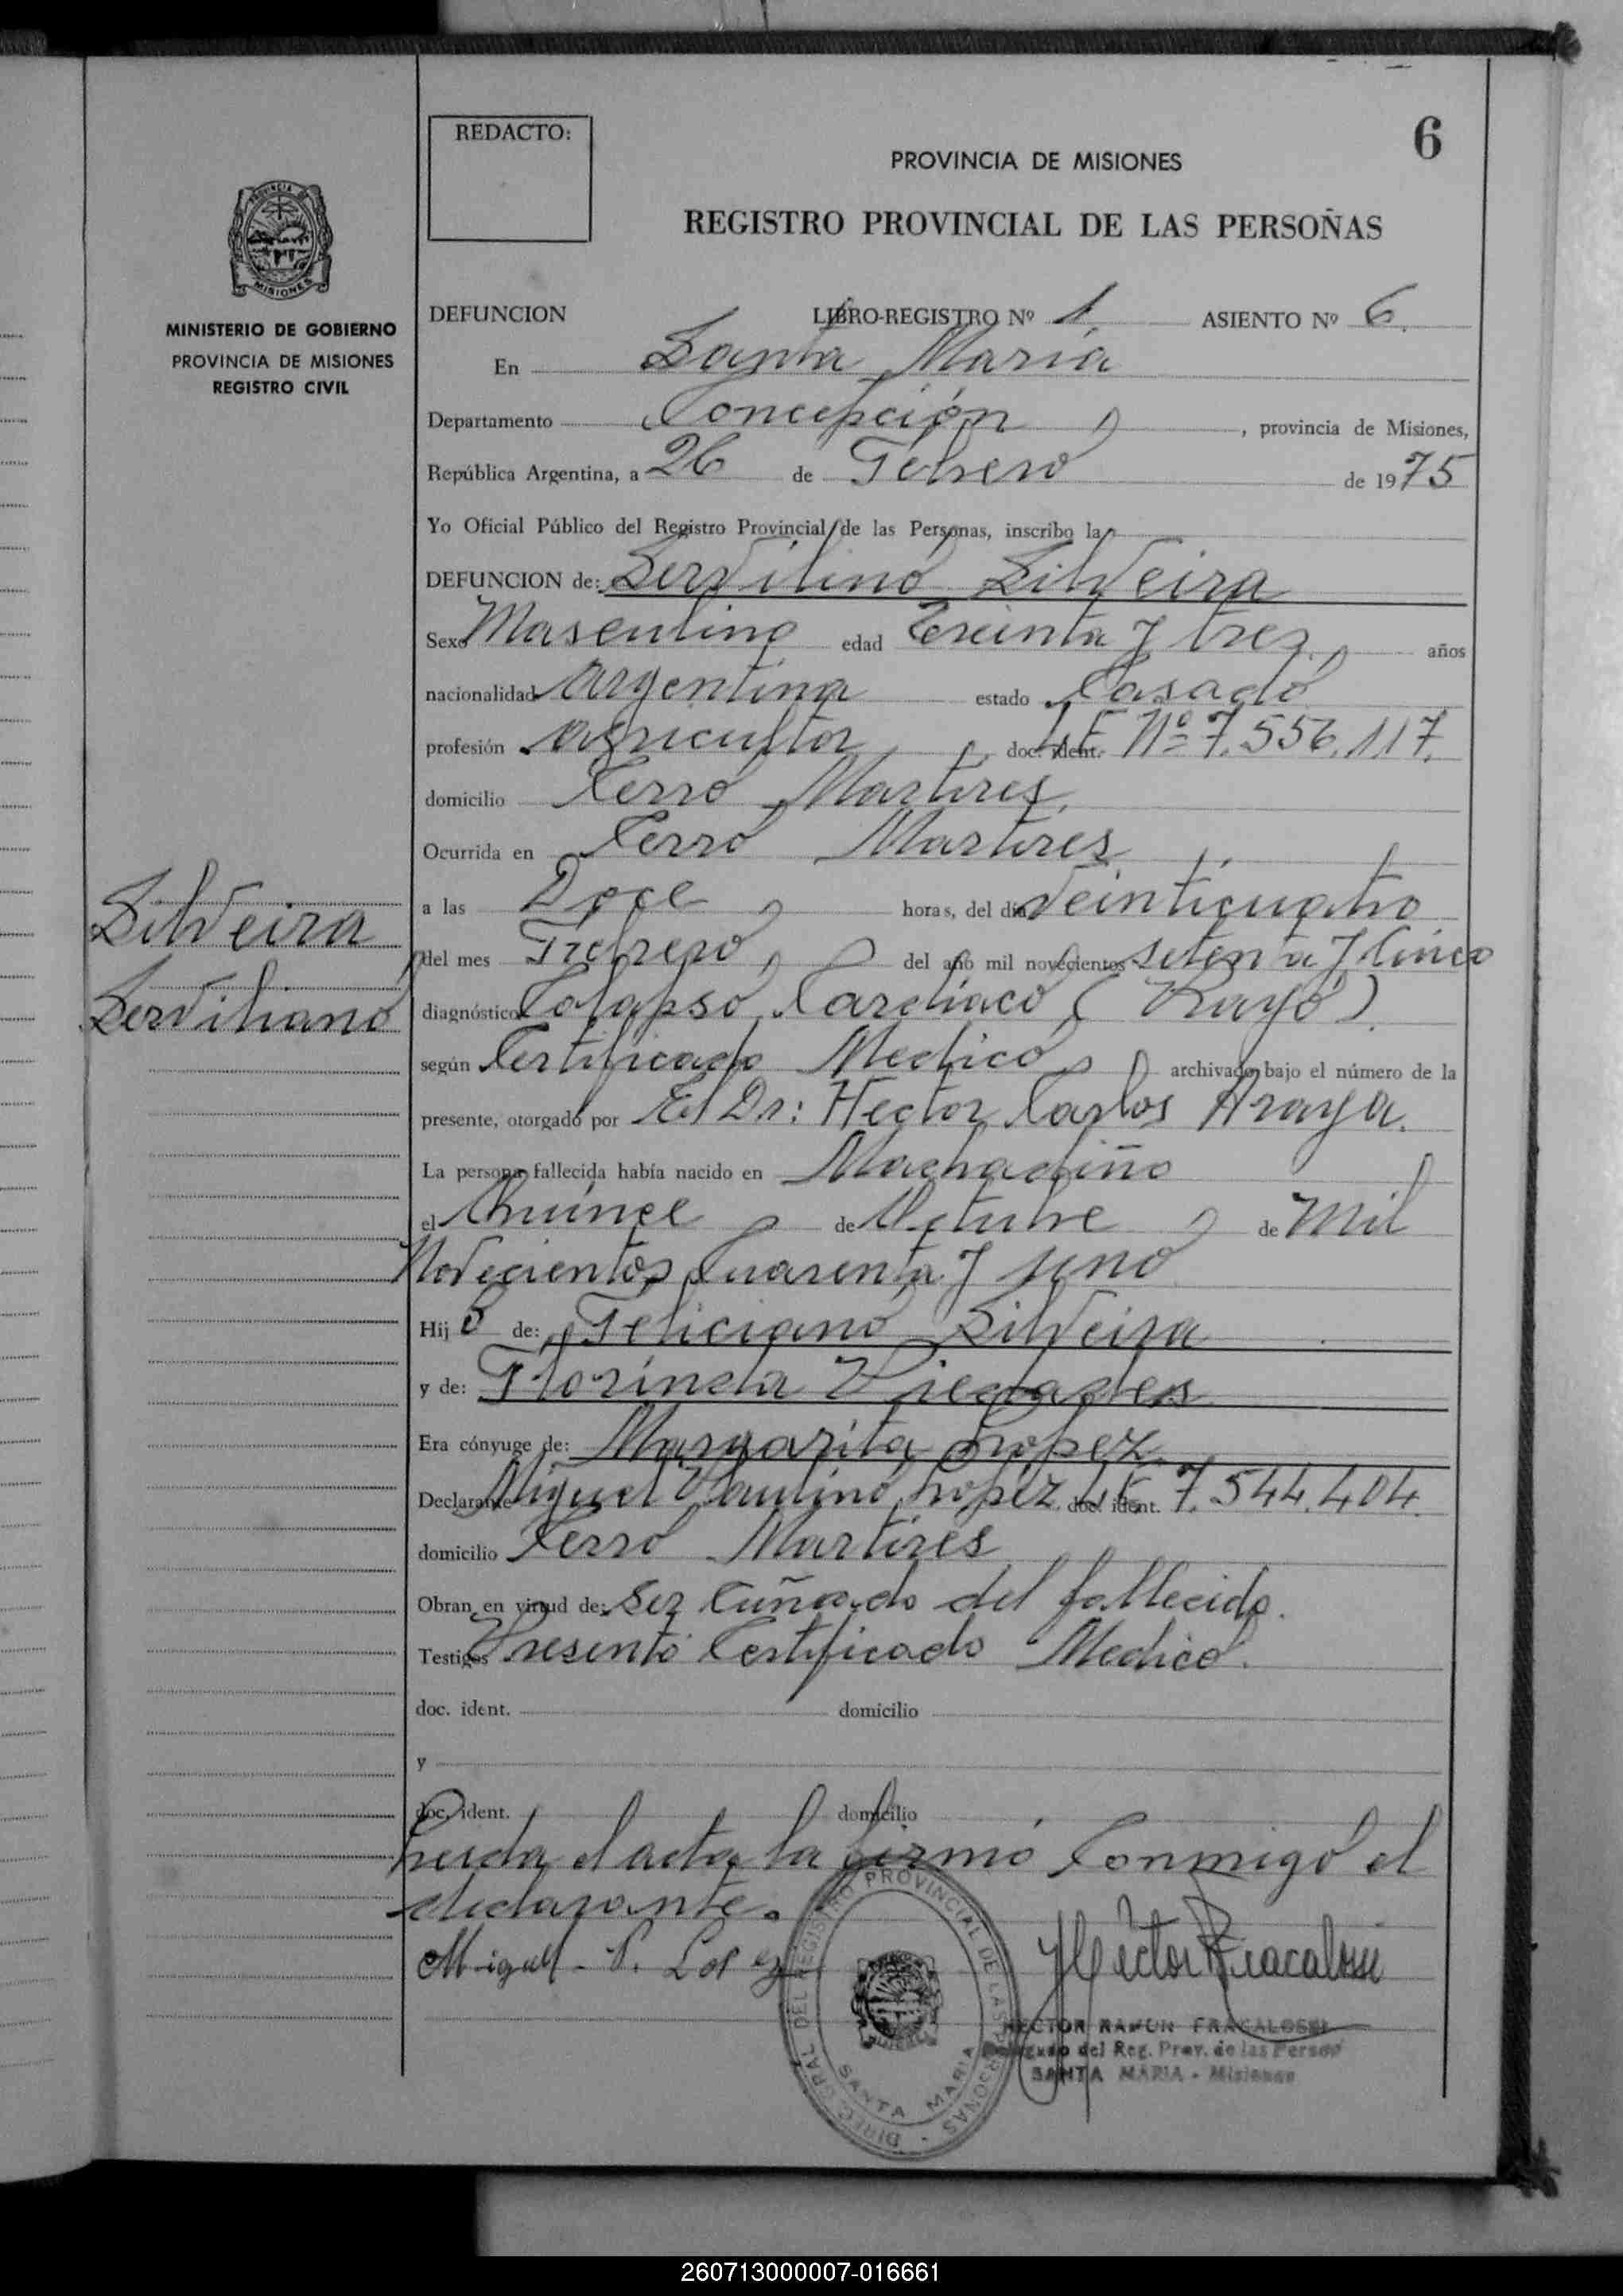 REDACTO:
6
PROVINCIA DE MISIONES
REGISTRO PROVINCIAL DE LAS PERSOÑAS
MISIONES
MINISTERIO DE GOBIERNO
PROVINCIA DE MISIONES
REGISTRO CIVIL
DEFUNCION LIBRO-REGISTRO Nº 1 ASIENTO Nº 6.
En Santa María
Departamento Concepción, provincia de Misiones,
República Argentina, a 26 de Febrero de 1975
Yo Oficial Público del Registro Provincial de las Personas, inscribo la
DEFUNCION de: Servilino Silveira
Sexo Masculino edad Treinta y tres años
nacionalidad Argentina estado Casado
profesión Agricultor, doc. ident. L.E. Nº 7.556.117.
domicilio Cerro Martires.
Ocurrida en Cerro Martires
a las Doce horas, del día Veinticuatro
del mes Febrero, del año mil novecientos setenta y cinco
Silveira
Serviliano
diagnóstico Colapso Cardíaco (Rayo)
según Certificado Medico, archivado bajo el número de la
presente, otorgado por El Dr: Hector Carlos Araya.
La persona fallecida había nacido en Machadiño
el Quince de Octubre de Mil
Novecientos Cuarenta y uno
Hijo de: Feliciano Silveira
y de: Florinda Piedades
Era cónyuge de: Margarita Lopez
Declarante Miguel Paulino Lopez doc. ident. L.E. 7.544.404.
domicilio Cerro Martires
Obran en virtud de: Ser Cuñado del fallecido.
Testigos Presento Certificado Medico.
doc. ident. domicilio
y
doc. ident. domicilio
Leida el acta la firmó Conmigo el
declarante.
Miguel P. Lopez
Hector Fracalossi
DIREC. GRAL. DEL REGISTRO PROVINCIAL DE LAS PERSONAS
SANTA MARIA
HECTOR RAMON FRACALOSSI
Delegado del Reg. Prov. de las Person
SANTA MARIA - Misiones
260713000007-016661